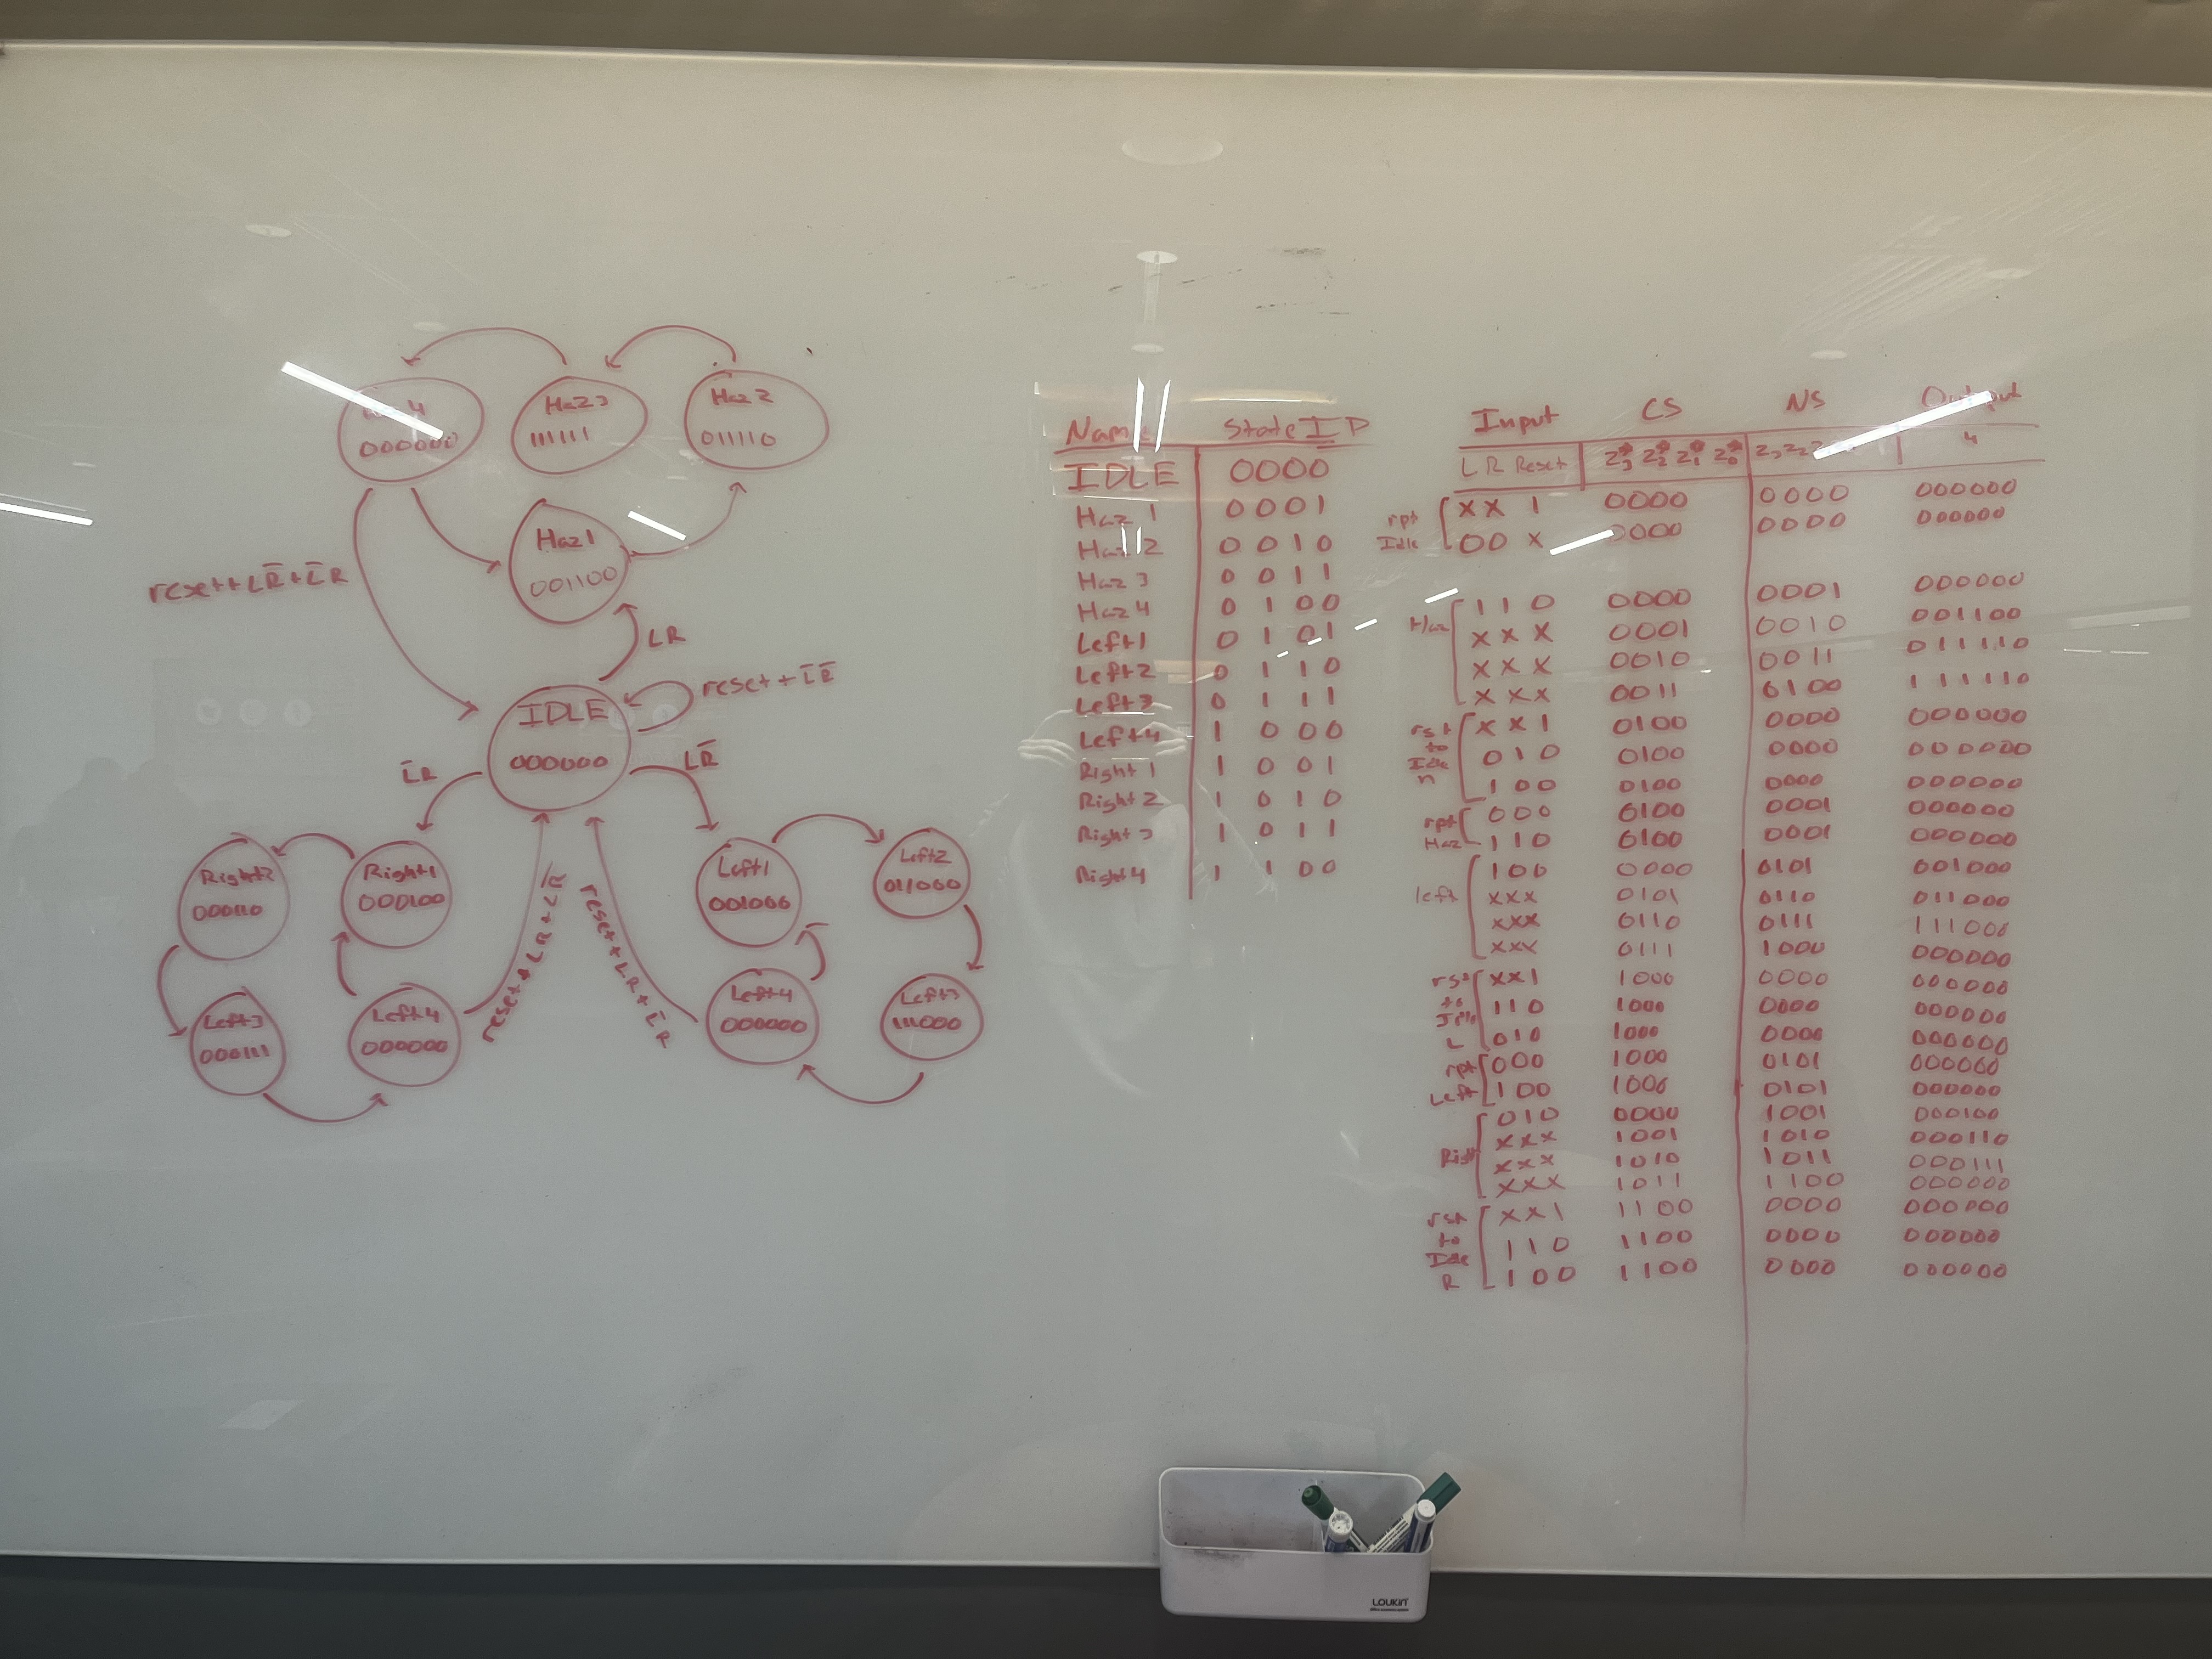 Haz 4
000000
Haz 3
111111
Haz 2
011110
Haz 1
001100
reset+LR̅+L̅R
LR
reset+L̅R̅
IDLE
000000
L̅R
LR̅
Right2
000110
Right1
000100
Left3
000111
Left4
000000
reset+LR+LR̅
reset+LR+L̅R
Left1
001000
Left2
011000
Left4
000000
Left3
111000
Name State ID
IDLE 0000
Haz 1 0001
Haz 2 0010
Haz 3 0011
Haz 4 0100
Left1 0101
Left2 0110
Left3 0111
Left4 1000
Right1 1001
Right2 1010
Right3 1011
Right4 1100
Input CS NS Output
L R Reset Z3* Z2* Z1* Z0* Z3 Z2 4
rpt Idle
XX1 0000 0000 000000
00X 0000 0000 000000
Haz
110 0000 0001 000000
XXX 0001 0010 001100
XXX 0010 0011 011110
XXX 0011 0100 111110
rst to Idle
XX1 0100 0000 000000
010 0100 0000 000000
100 0100 0000 000000
rpt Haz
000 0100 0001 000000
110 0100 0001 000000
left
100 0000 0101 001000
XXX 0101 0110 011000
XXX 0110 0111 111000
XXX 0111 1000 000000
rst to Idle L
XX1 1000 0000 000000
110 1000 0000 000000
010 1000 0000 000000
rpt Left
000 1000 0101 000000
100 1000 0101 000000
Right
010 0000 1001 000100
XXX 1001 1010 000110
XXX 1010 1011 000111
XXX 1011 1100 000000
rst to Idle R
XX1 1100 0000 000000
110 1100 0000 000000
100 1100 0000 000000
LOUKIN